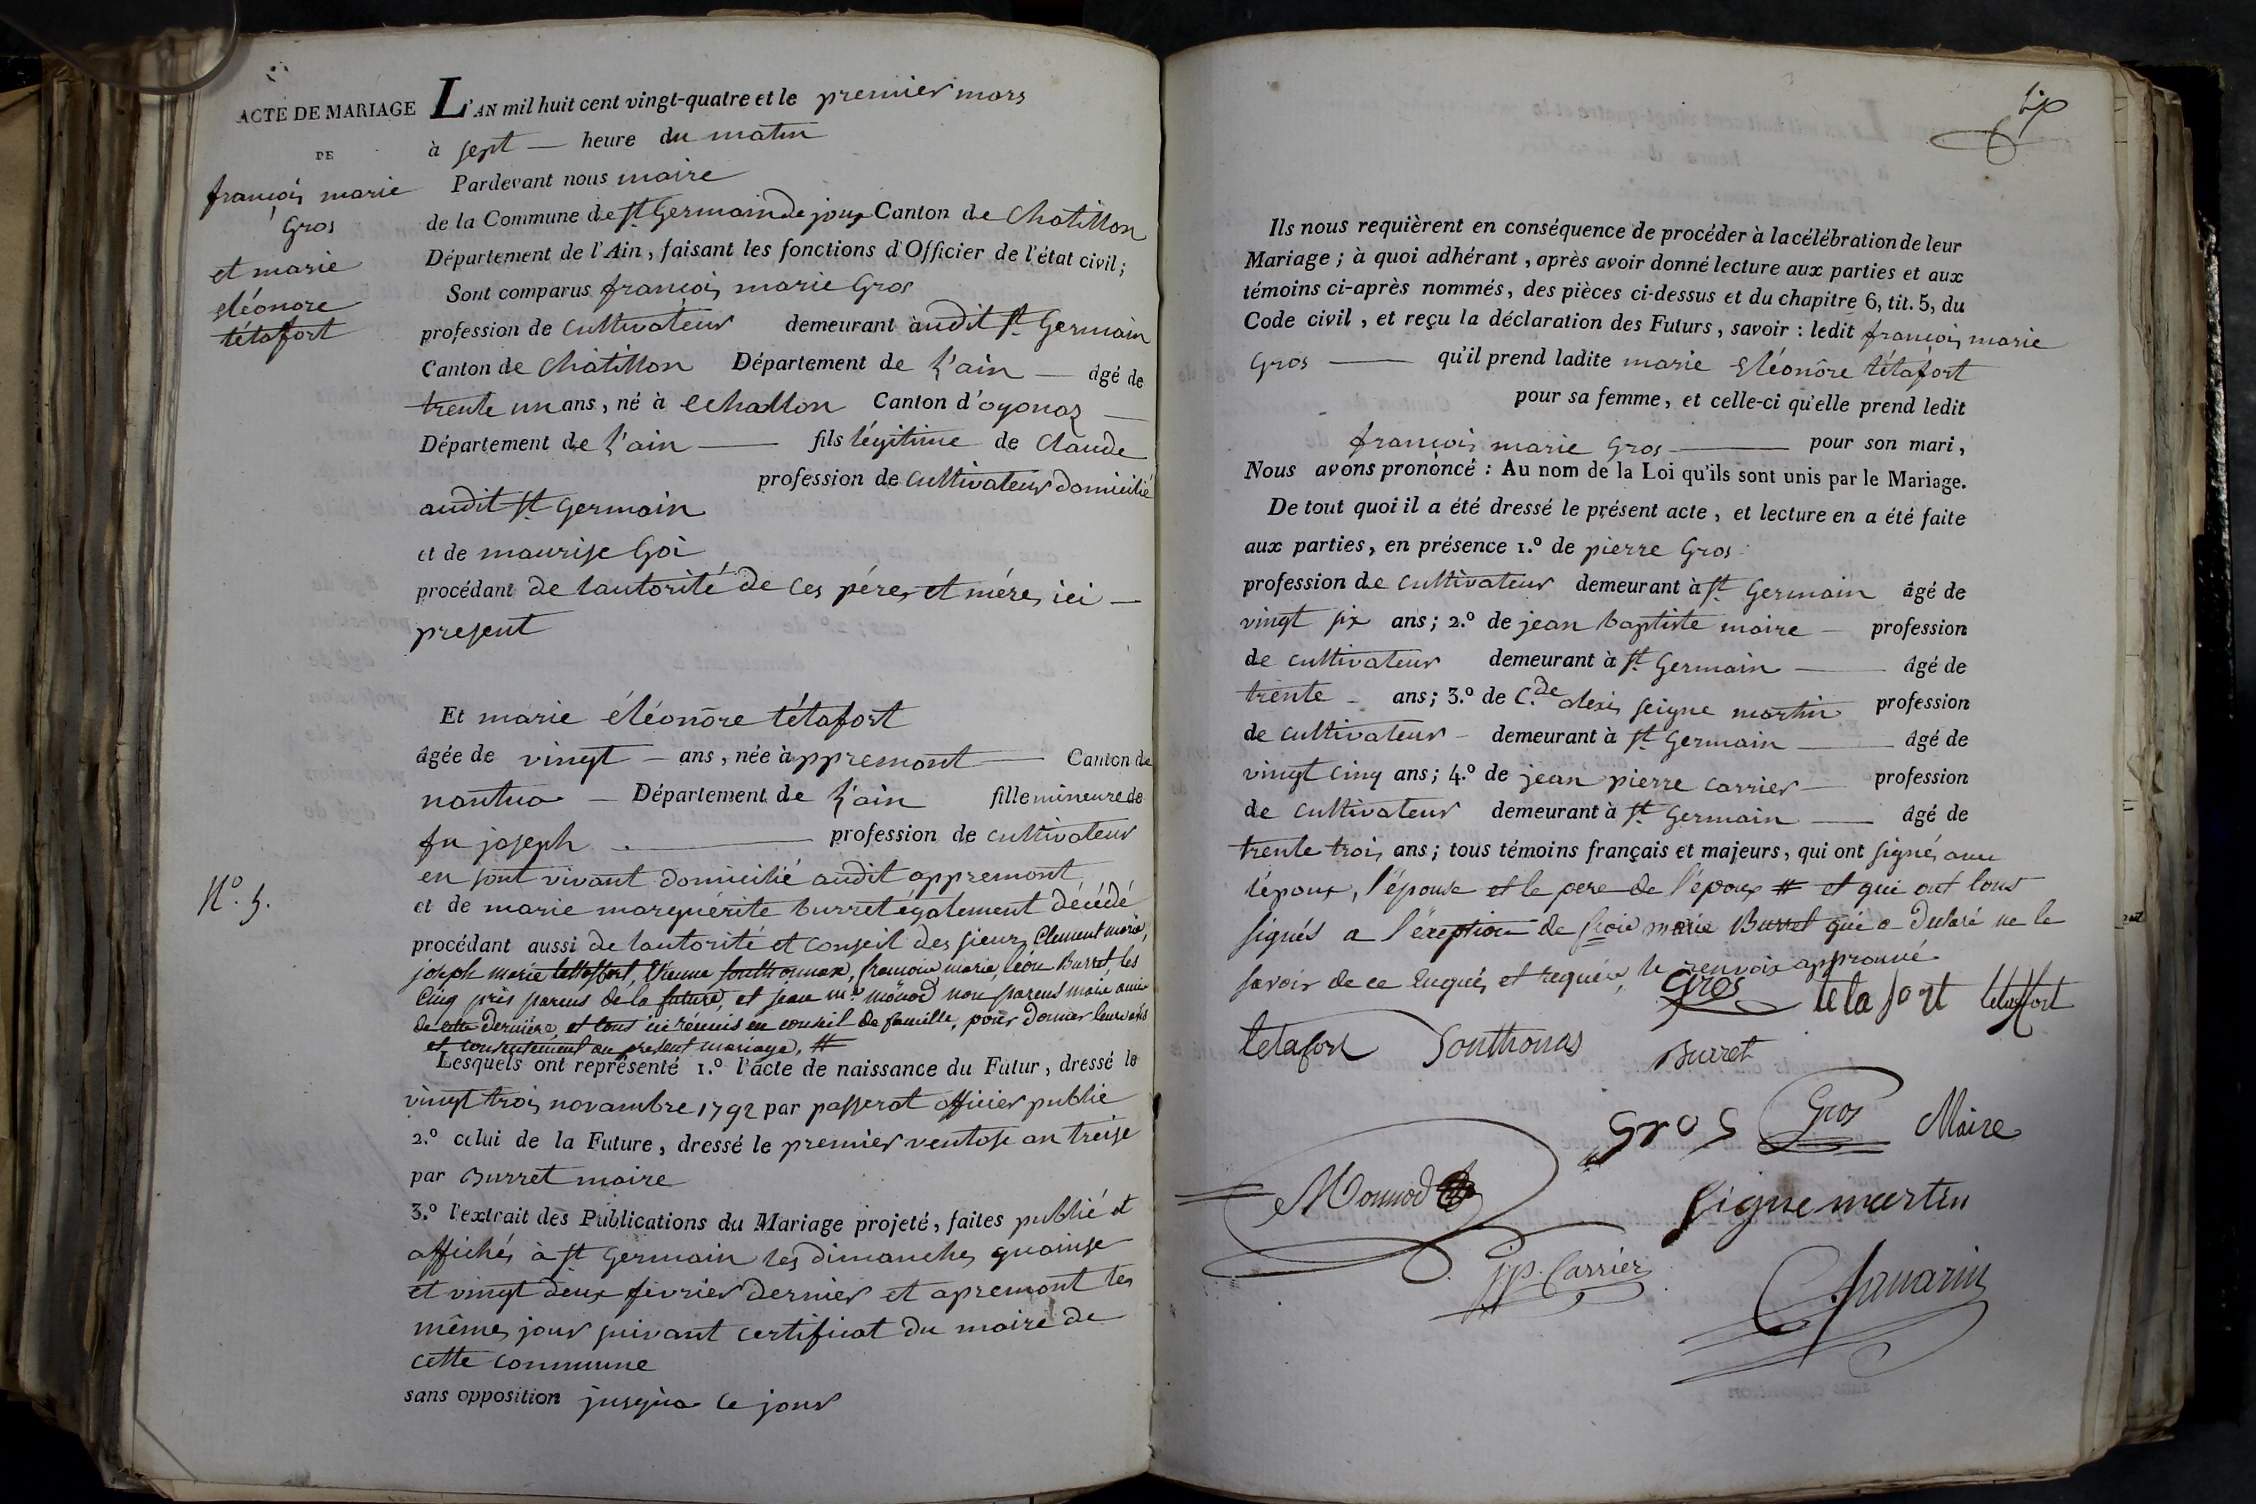 ACTE DE MARIAGE
DE
françois marie
Gros
et marie
eléonore
tétafort
N.o 5.
L'AN mil huit cent vingt-quatre et le premier mars
à sept — heure du matin
Pardevant nous maire
de la Commune de St Germain de joux Canton de Chatillon
Département de l'Ain, faisant les fonctions d'Officier de l'état civil;
Sont comparus françois marie Gros
profession de cultivateur demeurant audit St Germain
Canton de Chatillon Département de L'ain — âgé de
trente un ans, né à echallon Canton d'oyonaz —
Département de L'ain — fils légitime de Claude
profession de cultivateur domicilié
audit St Germain
et de maurise Goi
procédant de lautorité de ces péres et méres ici —
present
Et marie éléonore tétafort
âgée de vingt — ans, née à appremont — Canton de
nantua — Département de L'ain fille mineure de
fu joseph — profession de cultivateur
en sont vivant domicilié audit appremont
et de marie marguérite burret également décédé
procédant aussi de lautorité et conseil des sieurs Clement marie,
joseph marie tettaffort, Etienne Jonthonnax, francois marie, léon Burret les
Cinq près parens de la future, et jean m.ie mônod non parens mais amis
de cette dernière, et tous ici réunis en conseil de famille, pour donner leurs avis
et consentement au present mariage, #
Lesquels ont représenté 1.o l'acte de naissance du Futur, dressé le
vingt trois novambre 1792 par passerat officier public
2.o celui de la Future, dressé le premier ventose an treise
par Burret maire
3.o l'extrait des Publications du Mariage projeté, faites publié et
affichés à St Germain les dimanches quainse
et vingt deux février dernier et apremont les
mêmes jour suivant certificat du maire de
cette commune
sans opposition jusqua ce jour
Ils nous requièrent en conséquence de procéder à la célébration de leur
Mariage; à quoi adhérant, après avoir donné lecture aux parties et aux
témoins ci-après nommés, des pièces ci-dessus et du chapitre 6, tit. 5, du
Code civil, et reçu la déclaration des Futurs, savoir : ledit françois marie
Gros — qu'il prend ladite marie Eléonôre tétafort
pour sa femme, et celle-ci qu'elle prend ledit
françois marie Gros — pour son mari,
Nous avons prononcé : Au nom de la Loi qu'ils sont unis par le Mariage.
De tout quoi il a été dressé le présent acte, et lecture en a été faite
aux parties, en présence 1.o de pierre Gros
profession de cultivateur demeurant à St Germain âgé de
vingt six ans; 2.o de jean baptiste maire — profession
de cultivateur demeurant à St Germain — âgé de
trente — ans; 3.o de C.de alexis seigne martin profession
de cultivateur — demeurant à St Germain — âgé de
vingt cinq ans; 4.o de jean pierre carrier — profession
de cultivateur demeurant à St Germain — âgé de
trente trois ans; tous témoins français et majeurs, qui ont signés avec
lépoux, l'épouse et le pere de l'époux # et qui ont tous
signés a l'exeption de marie Burret qui a declaré ne le
savoir de ce enquis et requis, le renvoix approuvé
Gros tetafort tetaffort
tetafort Jonthonas Burret
Gros Gros Maire
Monnod
signe martin
jp. Carrier